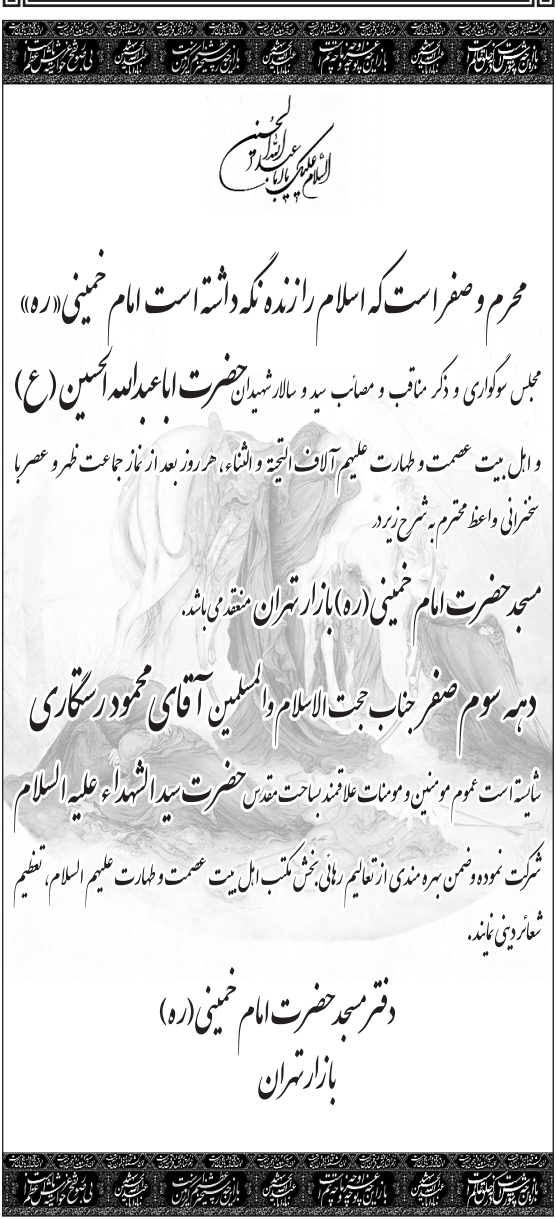 السلام علیک یا اباعبدالله الحسین
محرم و صفر است که اسلام را زنده نگه داشته است امام خمینی«ره»
مجلس سوگواری و ذکر مناقب و مصائب سید و سالار شهیدان حضرت اباعبدالله الحسین (ع)
و اهل بیت عصمت و طهارت علیهم آلاف التحیة و الثناء، هر روز بعد از نماز جماعت ظهر و عصر با
سخنرانی واعظ محترم به شرح زیر در
مسجد حضرت امام خمینی(ره)بازار تهران منعقد می باشد.
دهه سوم صفر جناب حجت الاسلام والمسلمین آقای محمود رستگاری
شایسته است عموم مومنین و مومنات علاقمند بساحت مقدس حضرت سید الشهداء علیه السلام
شرکت نموده و ضمن بهره مندی از تعالیم رهائی بخش مکتب اهل بیت عصمت و طهارت علیهم السلام، تعظیم
شعائر دینی نمایند.
دفتر مسجد حضرت امام خمینی(ره)
بازار تهران